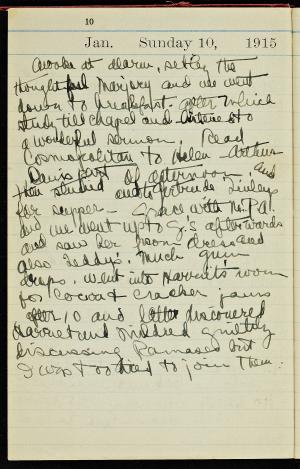 10
Jan. Sunday 10, 1915
Awoke at alarm, set by the
thoughtful Marjory and we went
down to breakfast - after which
study till chapel and to
a wonderful sermon. Read
Cosmopolitan to Helen -
part of afternoon, and
then studied
for supper - Grace with
and we went up to G.'s afterwards
and saw her prom dress and
also Teddy's. Much gum
drops. went into Harriet's room
for cocoa & cracker jams
after 10 and later discovered
Harriet and Mildred guiltily
discussing but
I was too tired to join them.